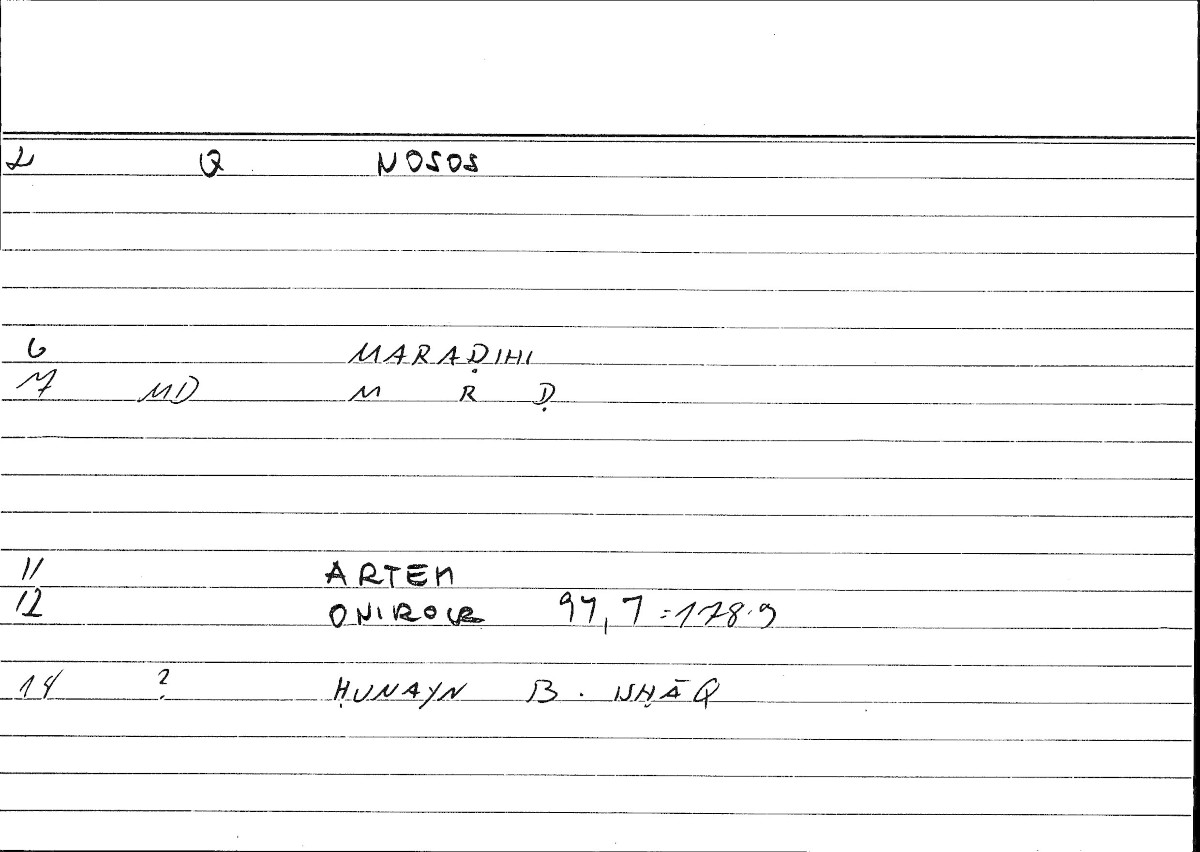 2 Q NOSOS
6 MARAḌIHI
7 MD M R Ḍ
11 ARTEM
12 ONIROCR 97,7 = 178.9
14 ? ḤUNAYN B. ISḤĀQ